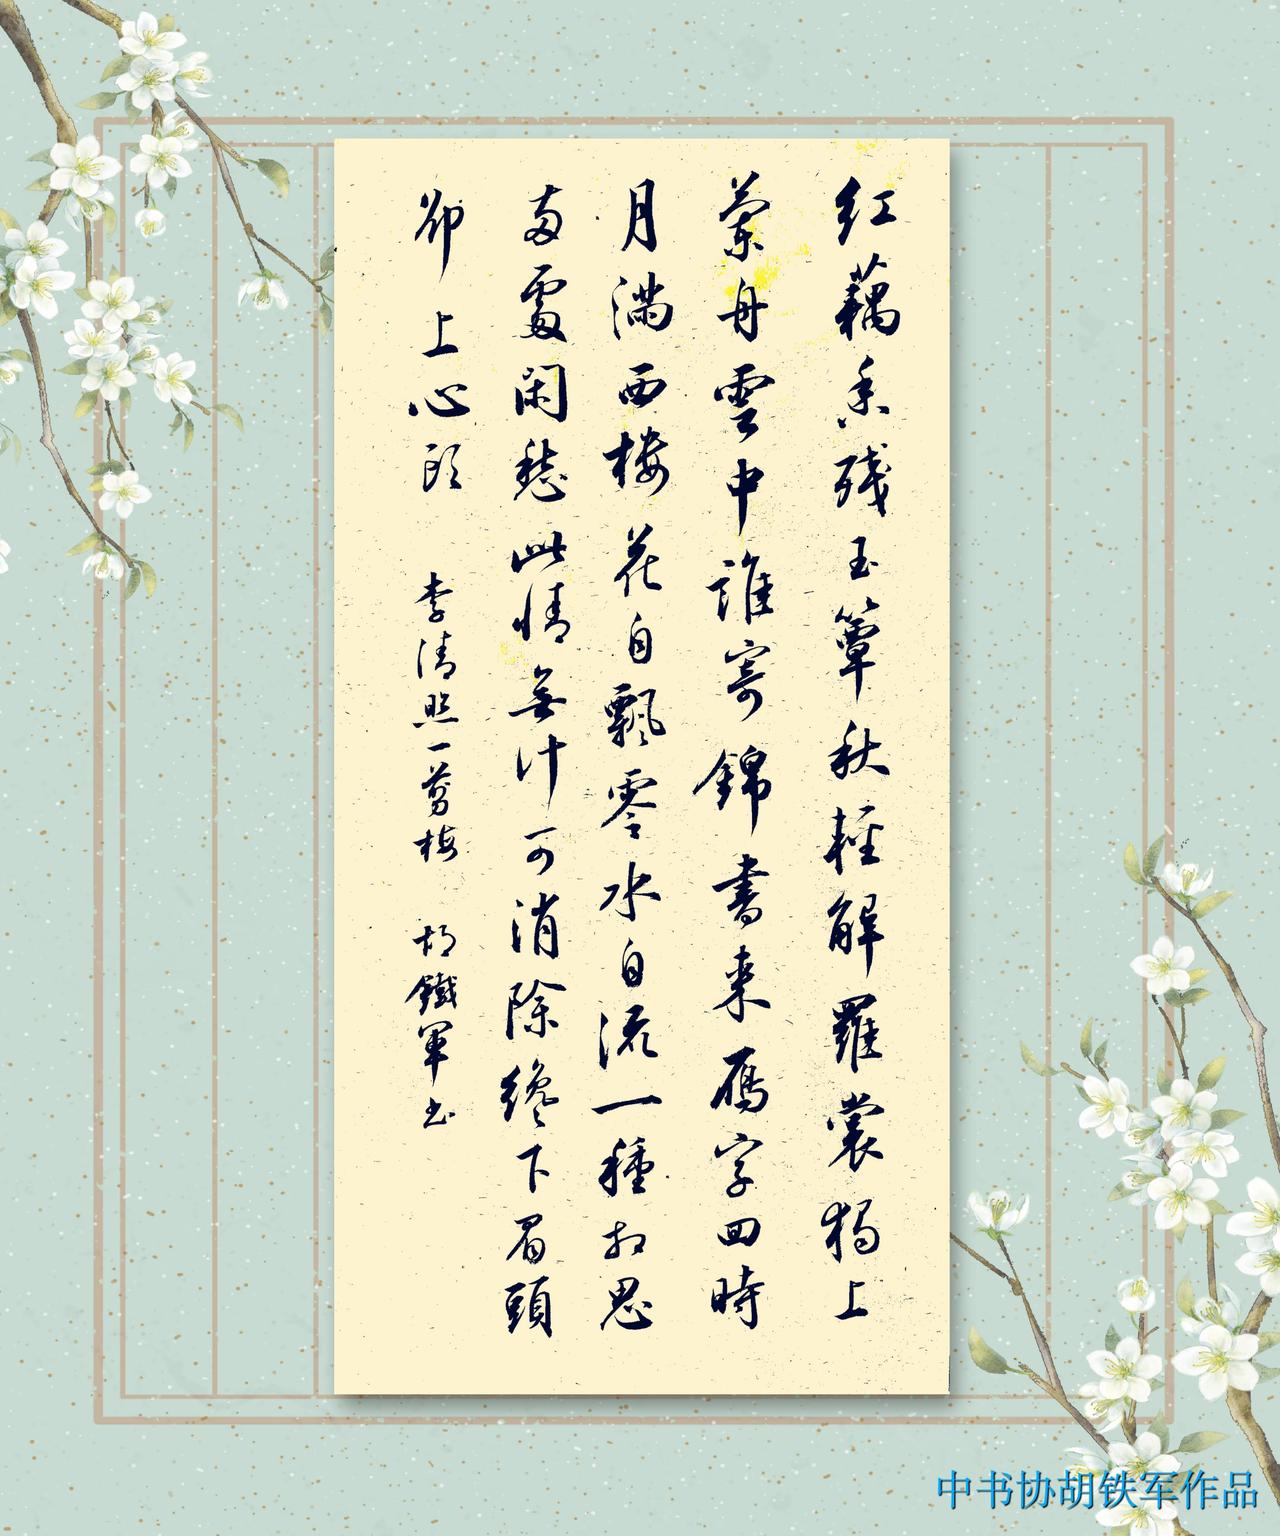 红藕香残玉簟秋輕解羅裳獨上
蘭舟雲中誰寄錦書来雁字回時
月满西楼花自飄零水自流一種相思
两處闲愁此情無计可消除纔下眉頭
卻上心頭 李清照一剪梅 胡鐵軍书
中书协胡铁军作品